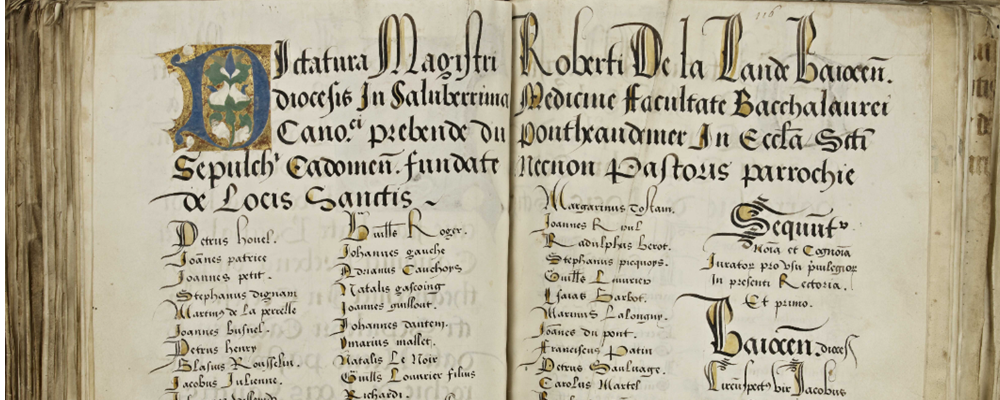 Dictatura Magistri Roberti De la Lande Baiocen̄.
diocesis In Saluberrima Medicine facultate Bacchalaurei
Cano.ci prebende du pontheaudemer In Eccl̄a Sct̄i
Sepulch' Cadomen̄. fundate necnon Pastoris parrochie
de Locis Sanctis ~
Petrus houel.
Joānes patrice
Joannes petit.
Stephanus dignam
Martin9 de la percelle
Joannes busnel.
Petrus henry
Blasius Rousselin.
Jacobus Julienne.
Guill̄s Roger.
Johannes gauche
Adrianus Cauchoys
Natalis gascoing
Joannes guillout.
Johannes dantem.
Ymarius mallet.
Natalis Le Noir
Guill̄s Louurier filius
Richardi.
Margarinus tostam.
Joannes Roul
Radulphus herot.
Stephanus picquoys.
Guill̄s Louurier
Isaias barbot.
Marinus Lalonguy.
Joānes du pont.
Franciscus Patin
Petrus Sauluage.
Carolus Martel
116
Sequūt'
Noīa et Cognoīa
Jurator pro Vsu priuilegior
In presenti Rectoria.
Et primo.
Baiocen̄. dioces
Circūspect9 vir Jacobus